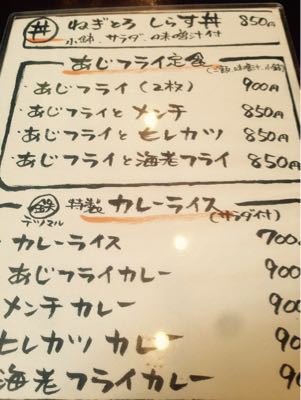 丼 ねぎとろ しらす丼 850円
小鉢、サラダ、味噌汁付
あじフライ定食 (ご飯、味噌汁、小鉢)
・あじフライ(2枚) 900円
・あじフライと メンチ 850円
・あじフライと ヒレカツ 850円
・あじフライと 海老フライ 850円
鉄 特製 カレーライス (サラダ付)
テツマル
カレーライス 700
あじフライカレー 90
メンチ カレー 90
ヒレカツ カレー 90
海老フライカレー 90